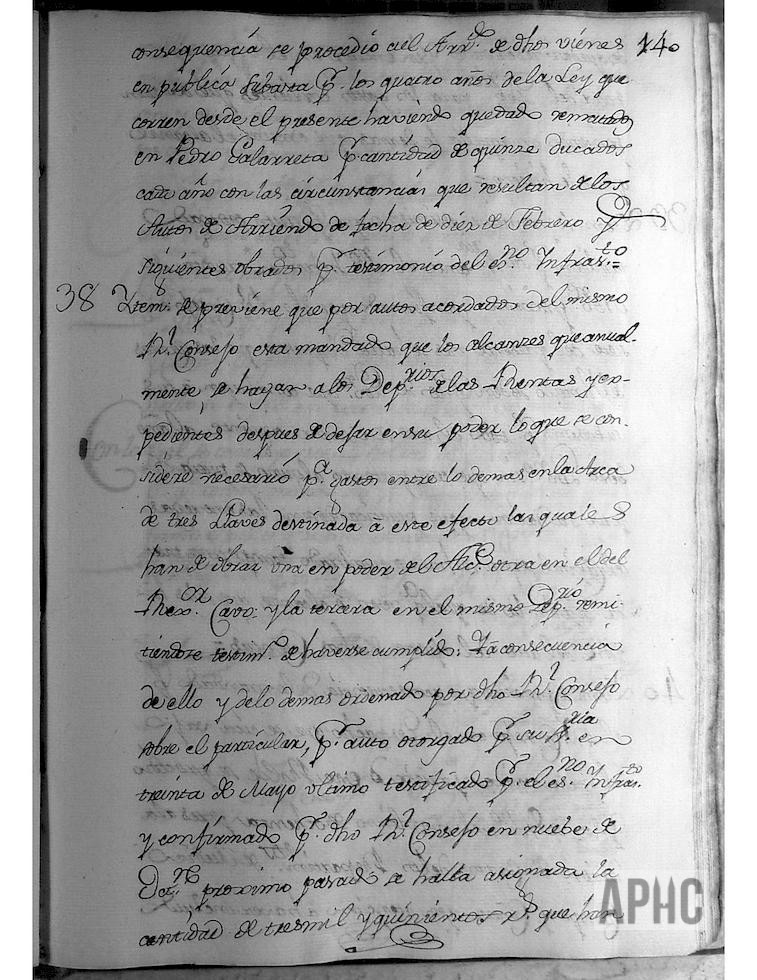 140
consequencia se procedio al Arr.do de dhos vienes
en publica subasta p.r los quatro años de la Ley que
corren desde el presente haviendo quedado rematados
en Pedro Galarreta p.r cantidad de quinze ducados
cada año con las circunstancias que resultan de los
Autos de Arriendo de fecha de diez de Febrero y
siguientes obrados p.r testimonio del es.no Infras.to =
38 Ytem: se previene que por autos acordados del mismo
R.l Consejo esta mandado que los alcanzes que anual-
mente se hagan a los Dep.rios de las Rentas y ex-
pedientes despues de dejar en su poder lo que se con-
sidere necesario p.a gastos entre lo demas en la Arca
de tres Llaves destinada a este efecto las quales
han de obrar una en poder del Alc.e otra en el del
Rex.or Cavo: y la tercera en el mismo Dep.rio remi-
tiendose testim.o de haverse cumplido: Y a consecuencia
de ello y de lo demas ordenado por dho R.l Consejo
sobre el particular, p.r auto otorgado p.r su
en
treinta de Mayo ultimo testificado p.r el es.no Infras.to
y confirmado p.r dho R.l Consejo en nuebe de
proximo pasado se halla asignada la
cantidad de tres mil y quinientos r.s que han
APHC